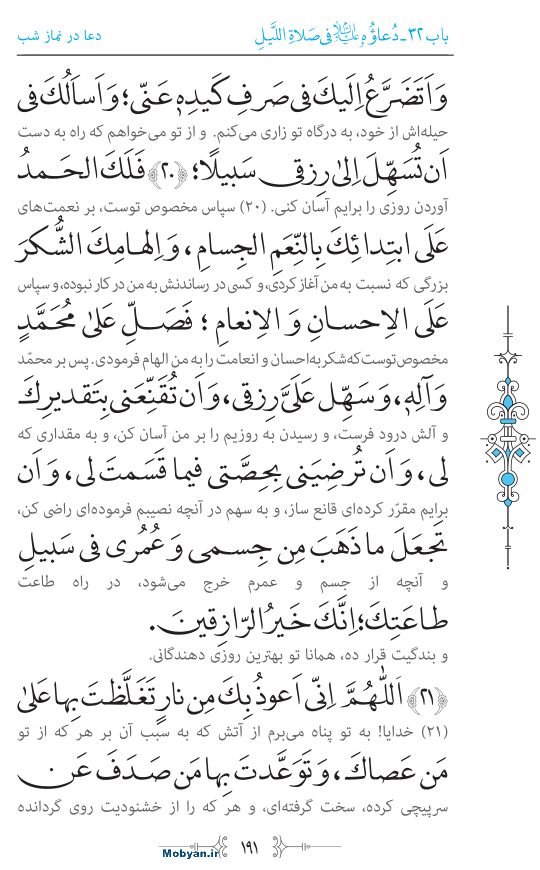 باب ۳۲ـ دُعاؤُهُ علیه‌السلام فی صَلاةِ اللَّیلِ
دعا در نماز شب
وَ اَتَضَرَّعُ اِلَیكَ فی صَرفِ كَیدِهٖ عَنّی؛ وَ اَساَلُكَ فی
حیله‌اش از خود، به درگاه تو زاری می‌کنم. و از تو می‌خواهم که راه به دست
اَن تُسَهِّلَ اِلیٰ رِزقی سَبیلًا؛ ﴿۲۰﴾ فَلَكَ الحَمدُ
آوردن روزی را برایم آسان کنی. (۲۰) سپاس مخصوص توست، بر نعمت‌های
عَلَی ابتِدائِكَ بِالنِّعَمِ الجِسامِ، وَ اِلهامِكَ الشُّكرَ
بزرگی که نسبت به من آغاز کردی، و کسی در رساندنش به من در کار نبوده، و سپاس
عَلَی الاِحسانِ وَ الاِنعامِ؛ فَصَلِّ عَلیٰ مُحَمَّدٍ
مخصوص توست که شکر به احسان و انعامت را به من الهام فرمودی. پس بر محمّد
وَ آلِهٖ، وَ سَهِّل عَلَیَّ رِزقی، وَ اَن تُقَنِّعَنی بِتَقدیرِكَ
و آلش درود فرست، و رسیدن به روزیم را بر من آسان کن، و به مقداری که
لی، وَ اَن تُرضِیَنی بِحِصَّتی فیما قَسَمتَ لی، وَ اَن
برایم مقرّر کرده‌ای قانع ساز، و به سهم در آنچه نصیبم فرموده‌ای راضی کن،
تَجعَلَ ما ذَهَبَ مِن جِسمی وَ عُمُری فی سَبیلِ
و آنچه از جسم و عمرم خرج می‌شود، در راه طاعت
طاعَتِكَ؛ اِنَّكَ خَیرُ الرّازِقینَ.
و بندگیت قرار ده، همانا تو بهترین روزی دهندگانی.
﴿۲۱﴾ اَللّٰهُمَّ اِنّی اَعوذُ بِكَ مِن نارٍ تَغَلَّظتَ بِها عَلیٰ
(۲۱) خدایا! به تو پناه می‌برم از آتش که به سبب آن بر هر که از تو
مَن عَصاكَ، وَ تَوَعَّدتَ بِها مَن صَدَفَ عَن
سرپیچی کرده، سخت گرفته‌ای، و هر که را از خشنودیت روی گردانده
۱۹۱
Mobyan.ir